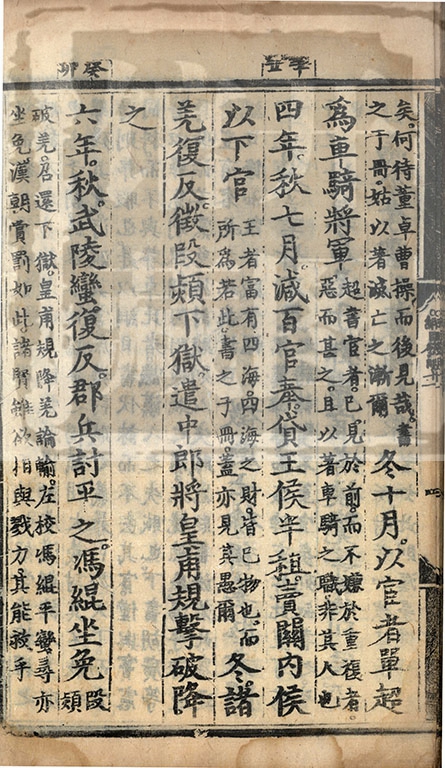 辛丑
癸卯
矣。何待董卓曹操而後見哉。書
之于冊。姑以著滅亡之漸爾
冬十月。以宦者單超
爲車騎將軍
超書宦者。已見於前。而不嫌於重複者。
惡而甚之。且以著車騎之職非其人也
四年。秋七月。減百官奉。貸王侯半租。賣關內侯
以下官
王者富有四海。四海之財。皆已物也。而
所爲若此。書之于冊。蓋亦見其愚爾
冬。諸
羌復反。徵段熲下獄。遣中郎將皇甫規擊破降
之
六年。秋。武陵蠻復反。郡兵討平之。馮緄坐免
段
熲
破羌。居還下獄。皇甫規降羌論輸。左校馮緄平蠻尋亦
坐免。漢朝賞罰如此。諸賢雖欲相與戮力。其能救乎